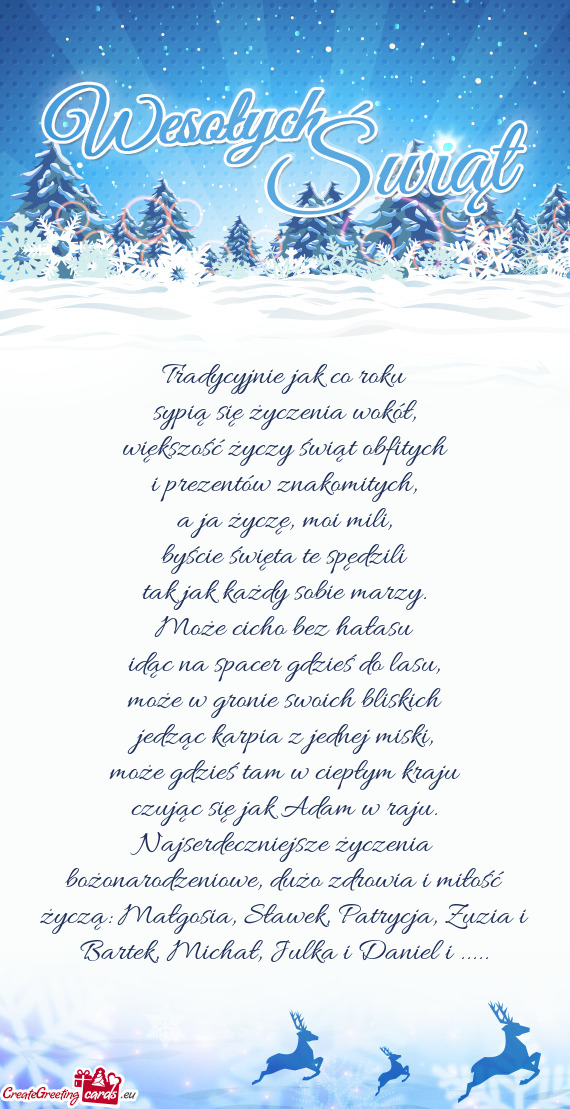 Wesołych
Świąt
Tradycyjnie jak co roku
sypią się życzenia wokół,
większość życzy świąt obfitych
i prezentów znakomitych,
a ja życzę, moi mili,
byście święta te spędzili
tak jak każdy sobie marzy.
Może cicho bez hałasu
idąc na spacer gdzieś do lasu,
może w gronie swoich bliskich
jedząc karpia z jednej miski,
może gdzieś tam w ciepłym kraju
czując się jak Adam w raju.
Najserdeczniejsze życzenia
bożonarodzeniowe, dużo zdrowia i miłość
życzą: Małgosia, Sławek, Patrycja, Zuzia i
Bartek, Michał, Julka i Daniel i .....
CreateGreeting cards .eu